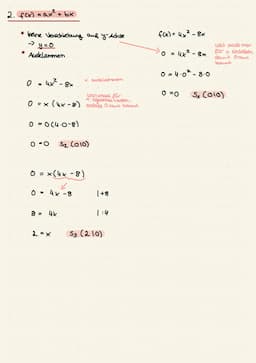 2. f(x) = ax² + bx
• keine Verschiebung auf y-Achse
→ y=0
• Ausklammern
0 = 4x² - 8x
x ausklammern
0 = x (4x - 8)
0 = 0 (4·0 - 8)
0 = 0 S₁ (0|0)
0 = x (4x - 8)
0 = 4x - 8 |+8
8 = 4x |:4
2 = x S₂ (2|0)
f(x) = 4x² - 8x
0 = 4x² - 8x
0 = 4·0² - 8·0
0 = 0 S₁ (0|0)